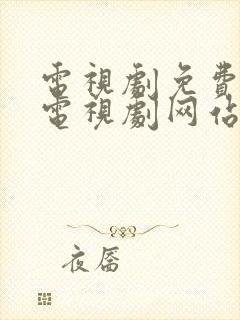 電視劇免費
電視劇网佔
夜唇